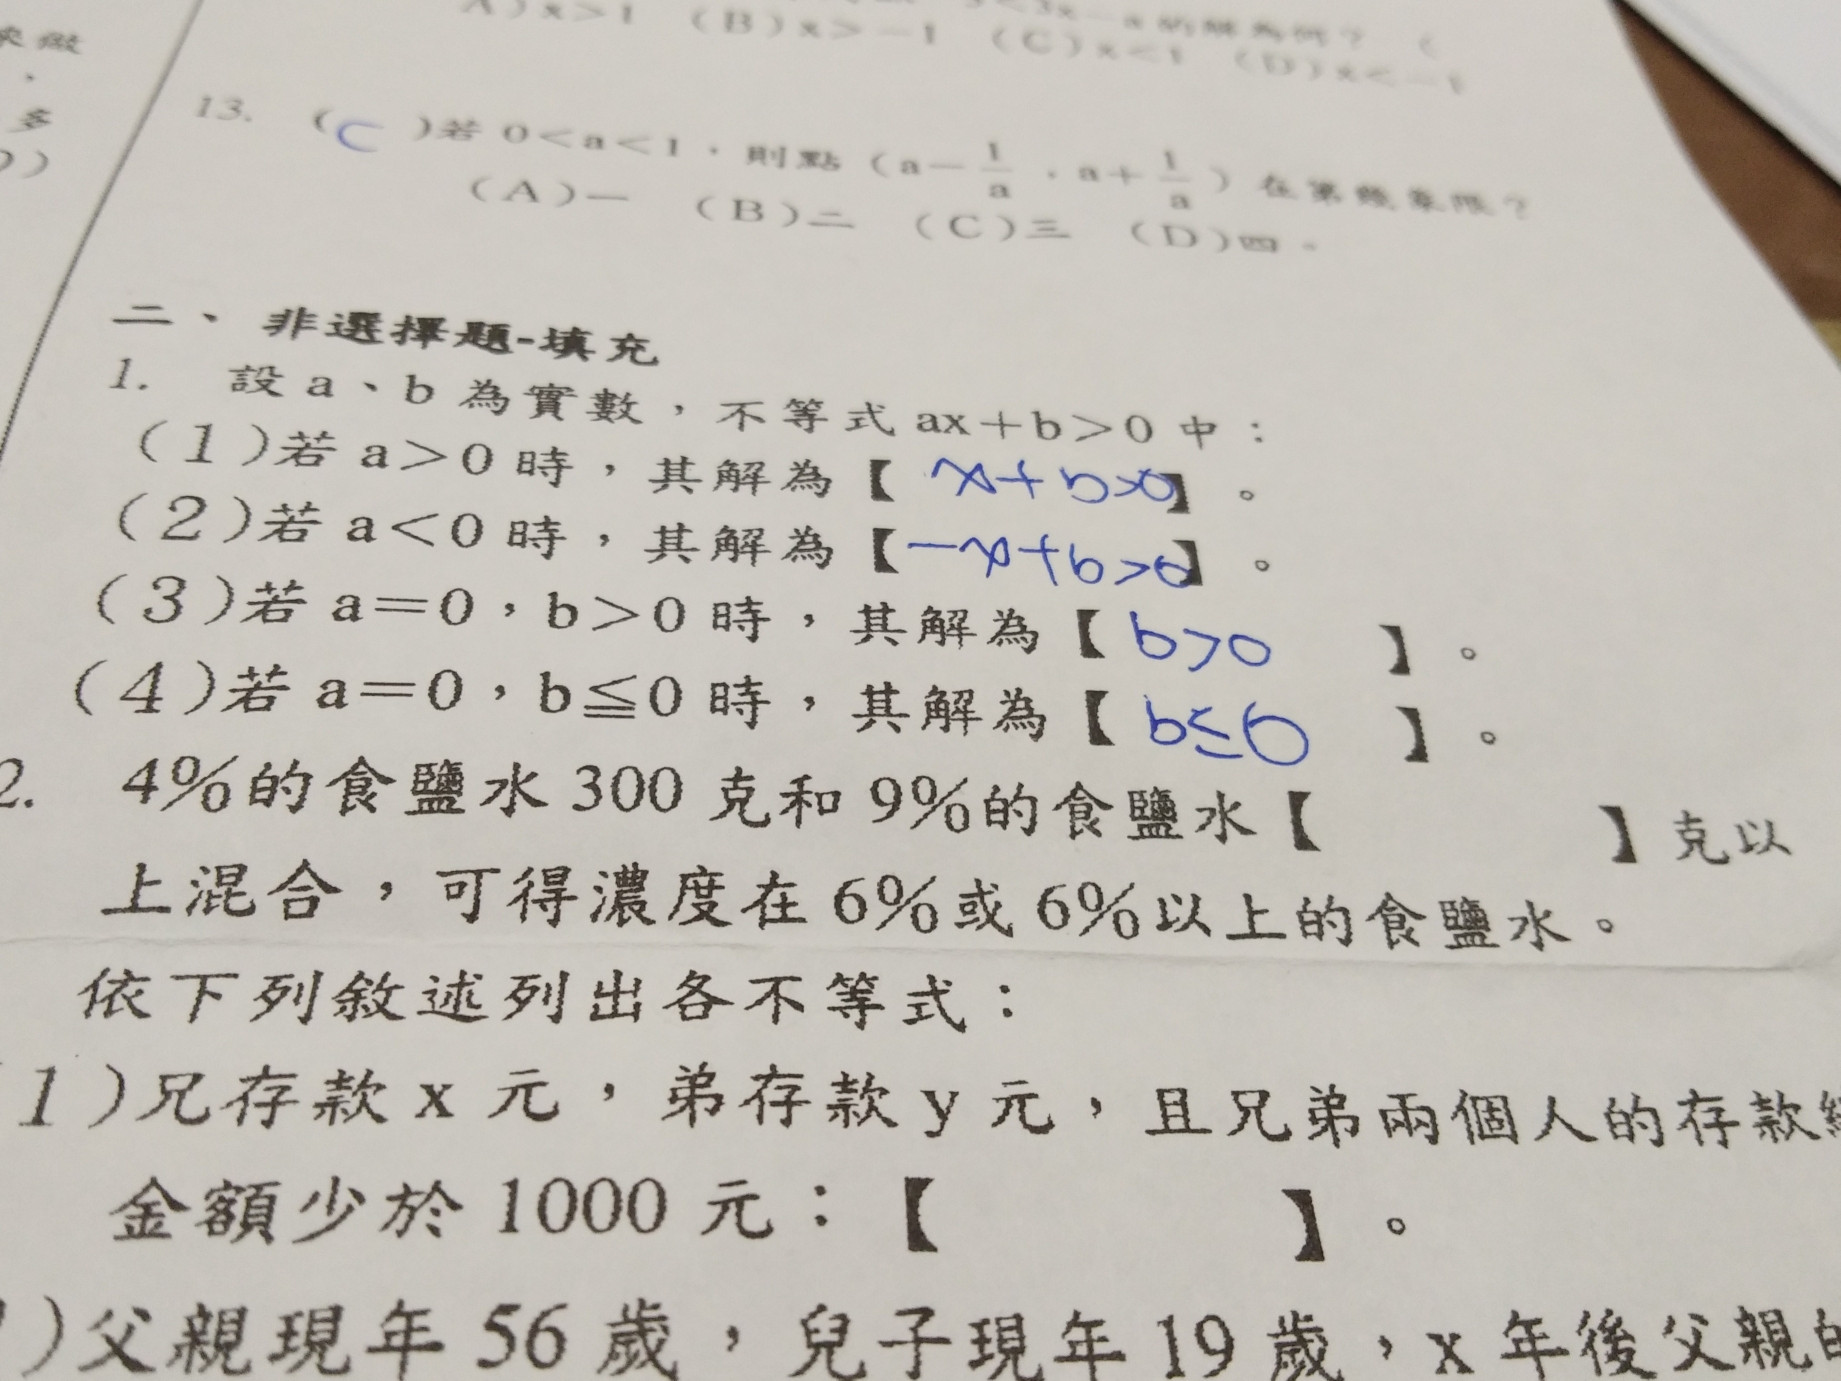 A)x>1 (B)x>-1 (C)x<1 (D)x<-1
做
多
13. (C)若 0<a<1,則點(a-1/a,a+1/a)在第幾象限?
(A)一 (B)二 (C)三 (D)四。
二、非選擇題-填充
1. 設 a、b 為實數,不等式 ax+b>0 中:
(1)若 a>0 時,其解為【x+b>0】。
(2)若 a<0 時,其解為【-x+b>0】。
(3)若 a=0,b>0 時,其解為【b>0】。
(4)若 a=0,b≦0 時,其解為【b≤0】。
2. 4%的食鹽水 300 克和 9%的食鹽水【 】克以
上混合,可得濃度在 6%或 6%以上的食鹽水。
依下列敘述列出各不等式:
1)兄存款 x 元,弟存款 y 元,且兄弟兩個人的存款
金額少於 1000 元:【 】。
)父親現年 56 歲,兒子現年 19 歲,x 年後父親的